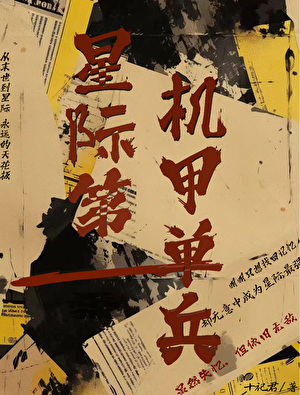 星际第一
机甲单兵
从末世到星际 永远的天花板
明明只想找回记忆
却无意中成为星际最强
虽然失忆 但依旧无敌
十祀君/著